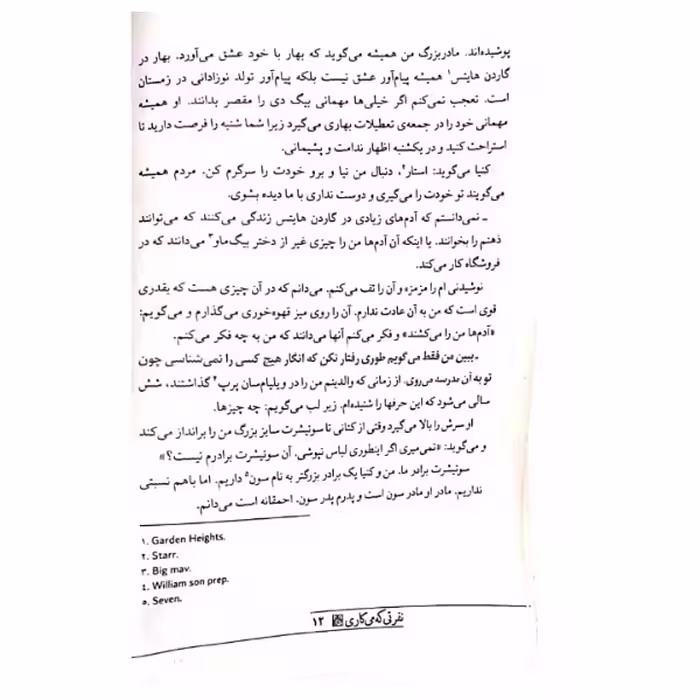 پوشیده‌اند. مادربزرگ من همیشه می‌گوید که بهار با خود عشق می‌آورد. بهار در
گاردن هایتس۱ همیشه پیام‌آور عشق نیست بلکه پیام‌آور تولد نوزادانی در زمستان
است. تعجب نمی‌کنم اگر خیلی‌ها مهمانی بیگ دی را مقصر بدانند. او همیشه
مهمانی خود را در جمعه‌ی تعطیلات بهاری می‌گیرد زیرا شما شنبه را فرصت دارید تا
استراحت کنید و در یکشنبه اظهار ندامت و پشیمانی.
کنیا می‌گوید: استار۲، دنبال من نیا و برو خودت را سرگرم کن. مردم همیشه
می‌گویند تو خودت را می‌گیری و دوست نداری با ما دیده بشوی.
ـ نمی‌دانستم که آدم‌های زیادی در گاردن هایتس زندگی می‌کنند که می‌توانند
ذهنم را بخوانند. یا اینکه آن آدم‌ها من را چیزی غیر از دختر بیگ‌ماو۳ می‌دانند که در
فروشگاه کار می‌کند.
نوشیدنی ام را مزمزه و آن را تف می‌کنم. می‌دانم که در آن چیزی هست که بقدری
قوی است که من به آن عادت ندارم. آن را روی میز قهوه‌خوری می‌گذارم و می‌گویم:
«آدم‌ها من را می‌کشند» و فکر می‌کنم آنها می‌دانند که من به چه فکر می‌کنم.
ـ ببین من فقط می‌گویم طوری رفتار نکن که انگار هیچ کسی را نمی‌شناسی چون
تو به آن مدرسه می‌روی. از زمانی که والدینم من را در ویلیام‌سان پرپ۴ گذاشتند، شش
سالی می‌شود که این حرفها را شنیده‌ام. زیر لب می‌گویم: چه چیزها.
او سرش را بالا می‌گیرد وقتی از کتانی تا سوئیشرت سایز بزرگ من را برانداز می‌کند
و می‌گوید: «نمی‌میری اگر اینطوری لباس نپوشی. آن سوئیشرت برادرم نیست؟»
سوئیشرت برادر ما. من و کنیا یک برادر بزرگتر به نام سون۵ داریم. اما باهم نسبتی
نداریم. مادر او مادر سون است و پدرم پدر سون. احمقانه است می‌دانم.
۱. Garden Heights.
۲. Starr.
۳. Big mav.
۴. William son prep.
۵. Seven.
نفرتی که می‌کاری ۱۲